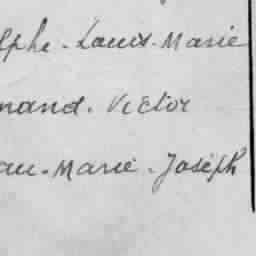 lphe - Louis - Marie
nand - Victor
au - Marie - Joseph